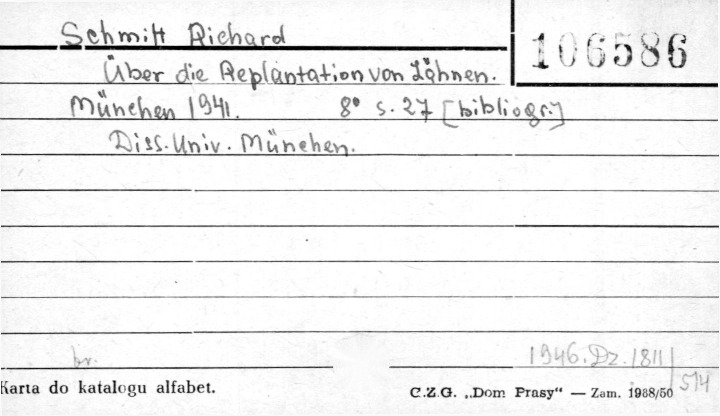 Schmitt Richard
106586
Über die Replantation von Zähnen.
München 1941. 8° s. 27 [bibliogr.]
Diss. Univ. München.
br.
1946. Dz. 1811/
514
Karta do katalogu alfabet.
C.Z.G. „Dom Prasy“ — Zam. 1938/50